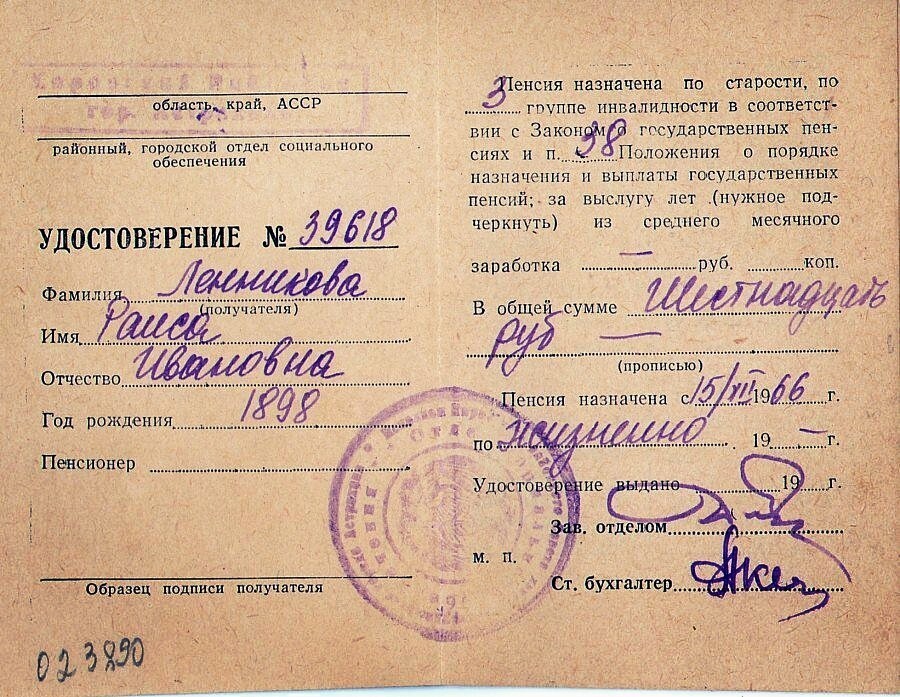 область, край, АССР
районный, городской отдел социального
обеспечения
УДОСТОВЕРЕНИЕ № 39618
Фамилия Ленникова
(получателя)
Имя Раиса
Отчество Ивановна
Год рождения 1898
Пенсионер
Образец подписи получателя
023890
Пенсия назначена по старости, по
3 группе инвалидности в соответст-
вии с Законом о государственных пен-
сиях и п. 38 Положения о порядке
назначения и выплаты государственных
пенсий; за выслугу лет (нужное под-
черкнуть) из среднего месячного
заработка — руб. коп.
В общей сумме Шестнадцать
руб —
(прописью)
Пенсия назначена с 15/XII 1966 г.
по жизненно 19 — г.
Удостоверение выдано 19 г.
Зав. отделом
м. п.
Ст. бухгалтер